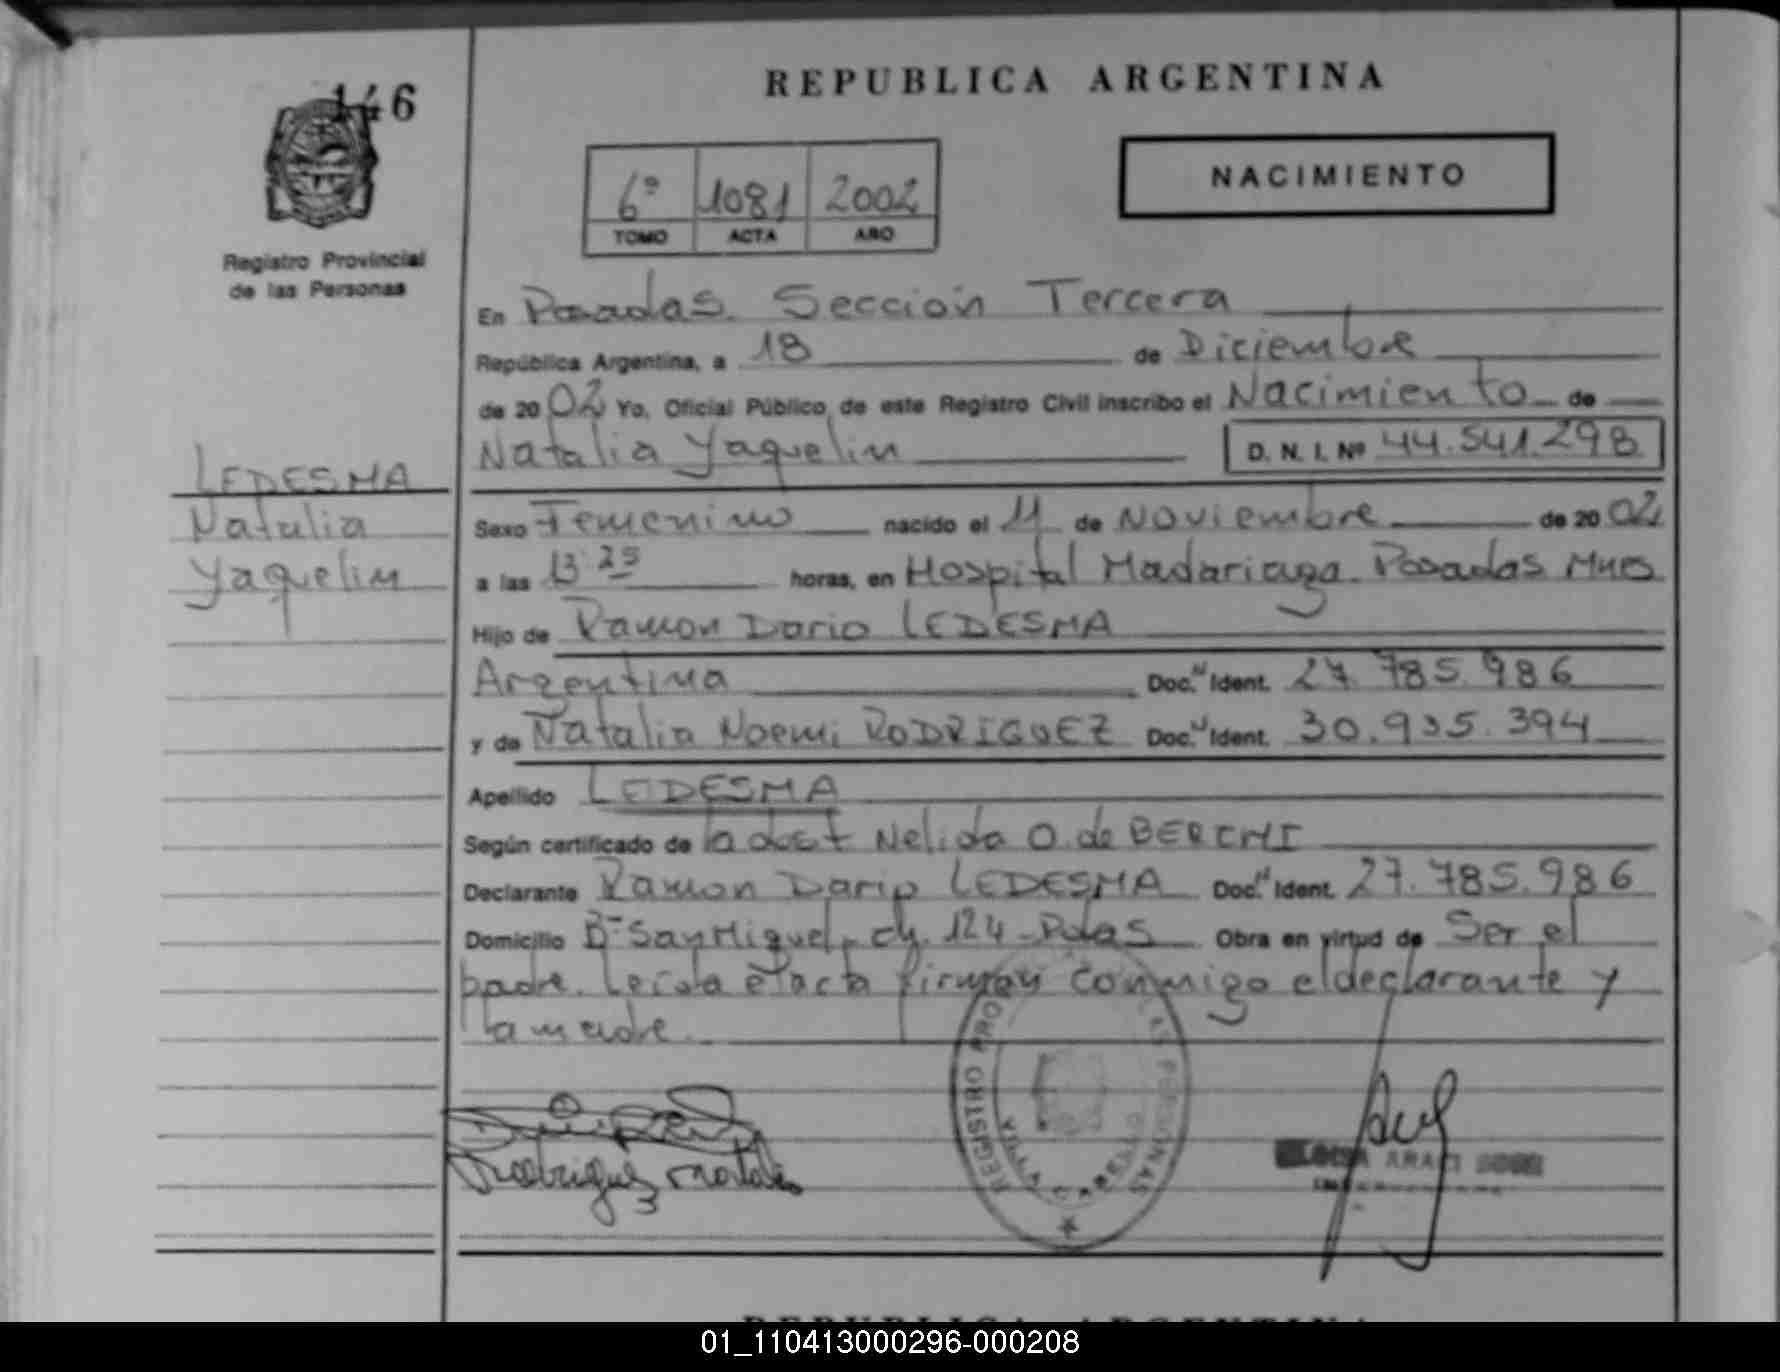 146
REPUBLICA ARGENTINA
6º 1081 2002
TOMO ACTA AÑO
NACIMIENTO
Registro Provincial
de las Personas
En Posadas. Sección Tercera
República Argentina, a 18 de Diciembre
de 2002 Yo, Oficial Público de este Registro Civil inscribo el Nacimiento de
Natalia Yaquelin D. N. I. Nº 44.541.298
LEDESMA
Natalia
Yaquelin
Sexo Femenino nacido el 11 de Noviembre de 2002
a las 13:25 horas, en Hospital Madariaga. Posadas Mnes
Hijo de Ramon Dario LEDESMA
Argentina Doc. Ident. 27.785.986
y de Natalia Noemi RODRIGUEZ Doc. Ident. 30.935.394
Apellido LEDESMA
Según certificado de la obst Nelida O. de
Declarante Ramon Dario LEDESMA Doc. Ident. 27.785.986
Domicilio Bº San Miguel, ch. 124 - Pdas Obra en virtud de Ser el
padre. Leída el acta firman conmigo el declarante y
la madre.
Rodriguez Natalia
REGISTRO LAS PERSONAS
VILLA CABELLO
ARACI
REPUBLICA ARGENTINA
01_110413000296-000208